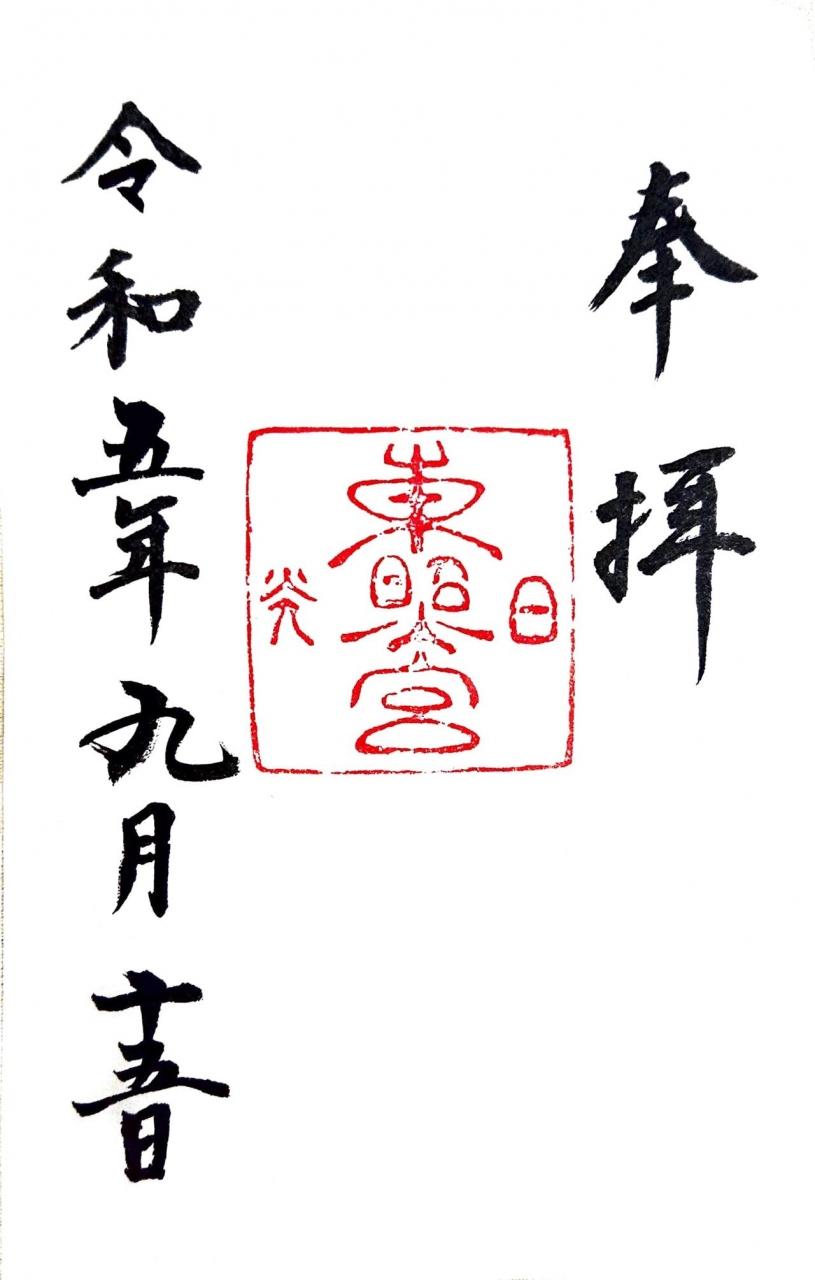 奉拝
日
東照宮
光
令和五年九月十五日